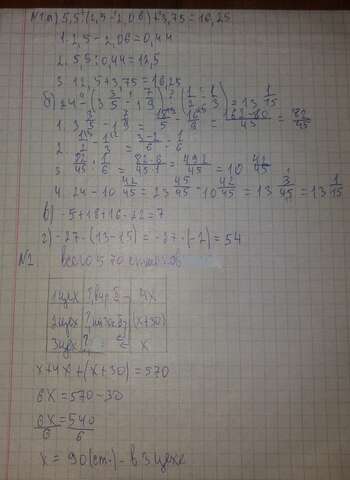 N1 а) 5,5:(2,5-2,06)+3,75=16,25
1. 2,5-2,06=0,44
2. 5,5:0,44=12,5
3. 12,5+3,75=16,25
б) 24-(3 3/5-1 7/9):(1/2-1/3)=13 1/15
1. 3 3/5-1 7/9=18/5-16/9=162-80/45=82/45
2. 1/2-1/3=3-2/6=1/6
3. 82/45:1/6=82·6/45·1=492/45=10 42/45
4. 24-10 42/45=23 45/45-10 42/45=13 3/45=13 1/15
в) -5+18+16-22=7
г) -27·(13-15)=-27·(-2)=54
N2 всего 570 станков
1 цех ?, в 4 р б - 4х
2 цех ?, на 30 б (х+30)
3 цех ? х
х+4х+(х+30)=570
6х=570-30
6х/6=540/6
х=90(ст.)-в 3 цехе